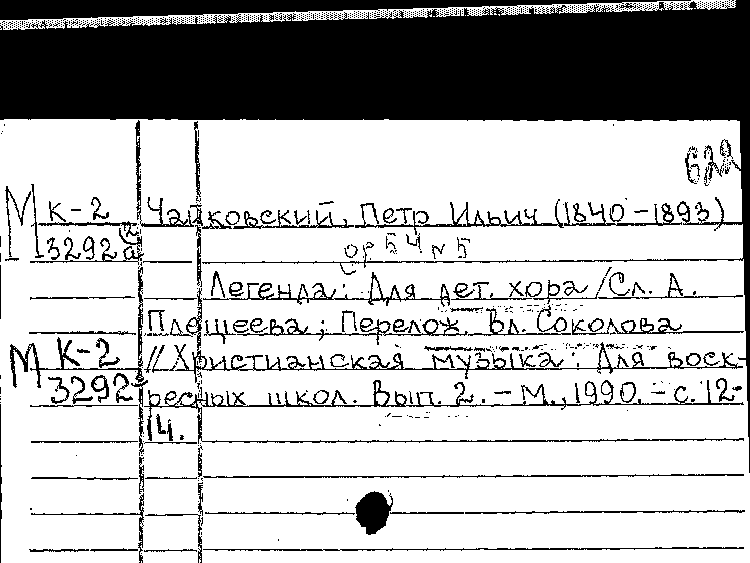 622
М К-2 Чайковский, Петр Ильич (1840-1893)
3292а
op 54 N 5
Легенда: Для дет. хора / Сл. А.
Плещеева; Перелож. Вл. Соколова
М К-2 // Христианская музыка: Для воск-
3292 ресных школ. Вып. 2. - М., 1990. - с. 12-
14.